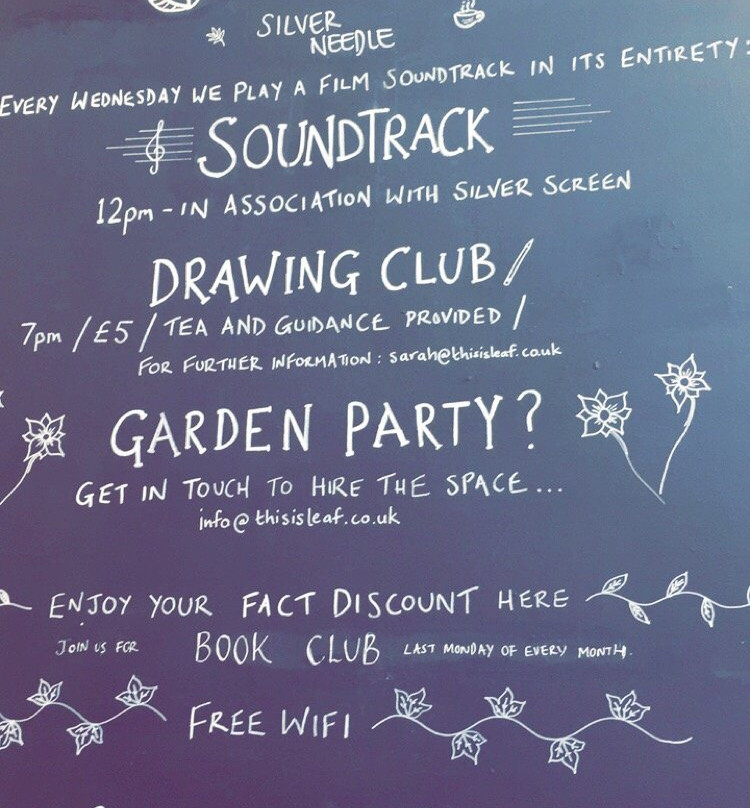 SILVER
NEEDLE
EVERY WEDNESDAY WE PLAY A FILM SOUNDTRACK IN ITS ENTIRETY:
SOUNDTRACK
12pm - IN ASSOCIATION WITH SILVER SCREEN
DRAWING CLUB/
7pm / £5 / TEA AND GUIDANCE PROVIDED /
FOR FURTHER INFORMATION : sarah@thisisleaf.co.uk
GARDEN PARTY?
GET IN TOUCH TO HIRE THE SPACE...
info@thisisleaf.co.uk
ENJOY YOUR FACT DISCOUNT HERE
JOIN US FOR BOOK CLUB LAST MONDAY OF EVERY MONTH.
FREE WIFI